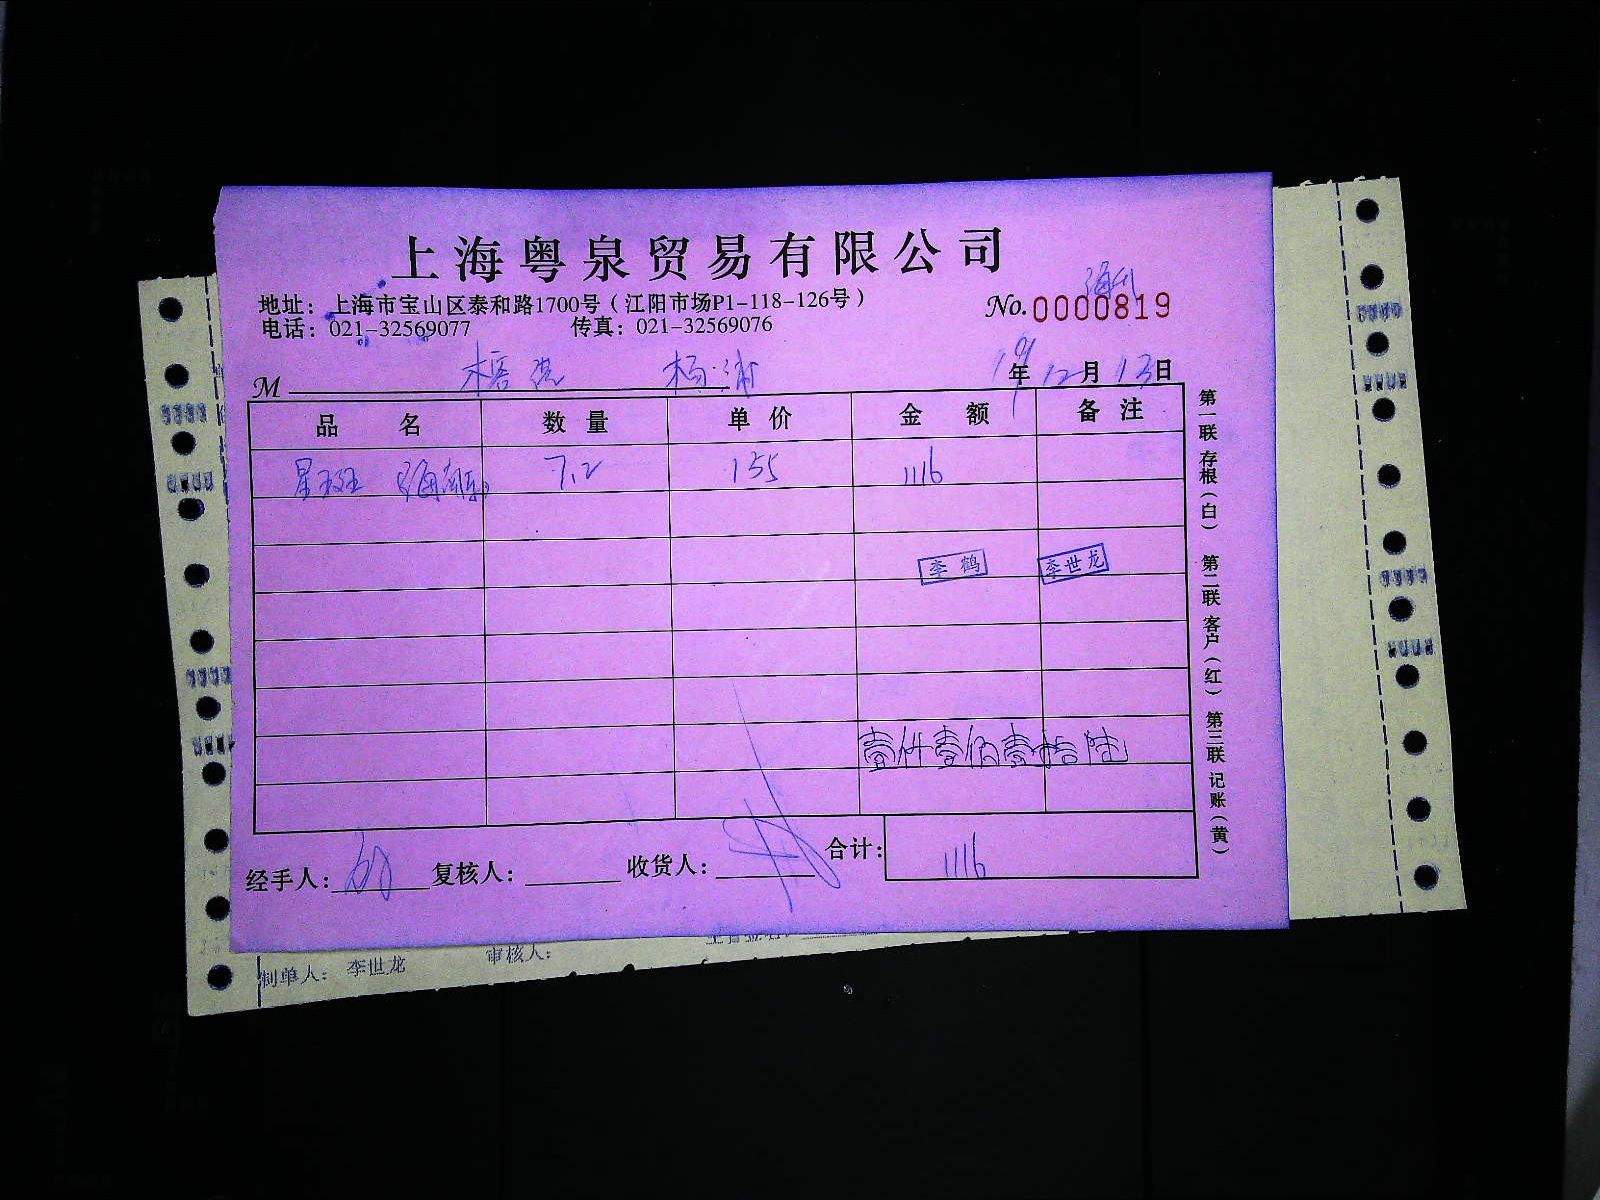 上海粤泉贸易有限公司
地址：上海市宝山区泰和路1700号（江阳市场P1-118-126号）
No.0000819
电话：021-32569077 传真：021-32569076
M 杨浦
19年12月13日
品名 数量 单价 金额 备注
星斑 7.2 155 1116
李鹤 李世龙
壹仟壹佰壹拾陆
经手人： 复核人： 收货人： 合计：1116
第一联 存根（白） 第二联 客户（红） 第三联 记账（黄）
制单人：李世龙 审核人：